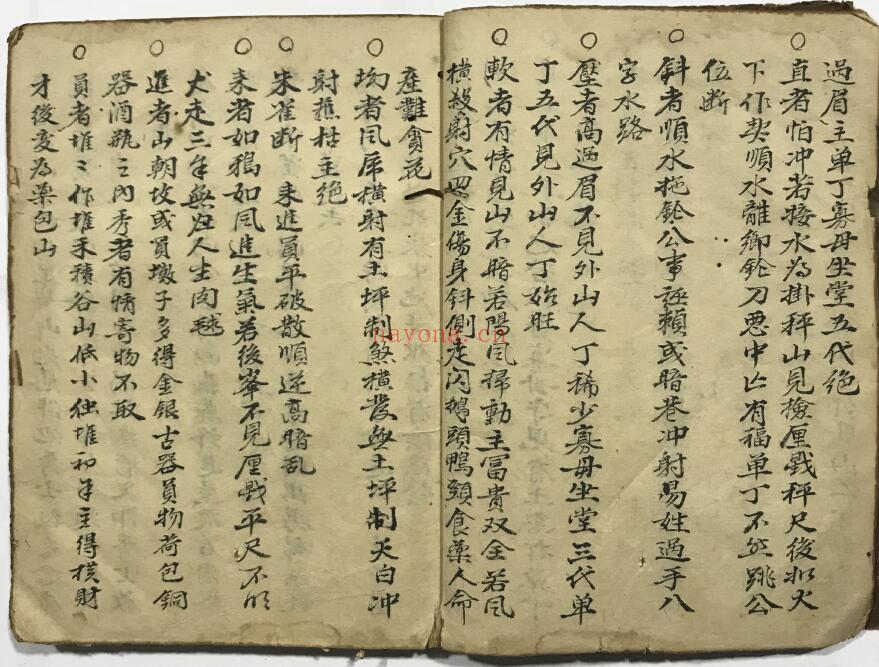 過眉主单丁寡母坐堂五代绝
○直者怕冲若接水為掛秤山見撿厘戥秤尺後扒火
下作契順水離鄉鎗刀悪中亡有福单丁不然跳公
位断
○斜者順水拖鎗公事誣賴或暗巷冲射易姓過手八
字水路
○壓者高過眉不見外山人丁稀少寡母坐堂三代单
丁五代見外山人丁始旺
○軟者有情見山不暗若陽風掃動主冨貴双全若風
橫殺射穴四金傷身斜側走闪鵝頭鴨頸食藥人命
産難貪花
○坳者風席橫射有土坪制煞橫發無土坪制天白冲
射樵枯主绝
○朱雀断 来進員平破散順逆高暗乱
○来者如鴉如風進生氣若後峯不見厘戥平尺不明
犬走三年無归人生肉毬
○進者山朝坟或員墩子多得金银古器員物荷包銅
器酒瓶之内秀者有情寄物不取
○員者堆〻作堆禾積谷山低小独堆初年主得橫財
才後变為栗包山
nayona.cn